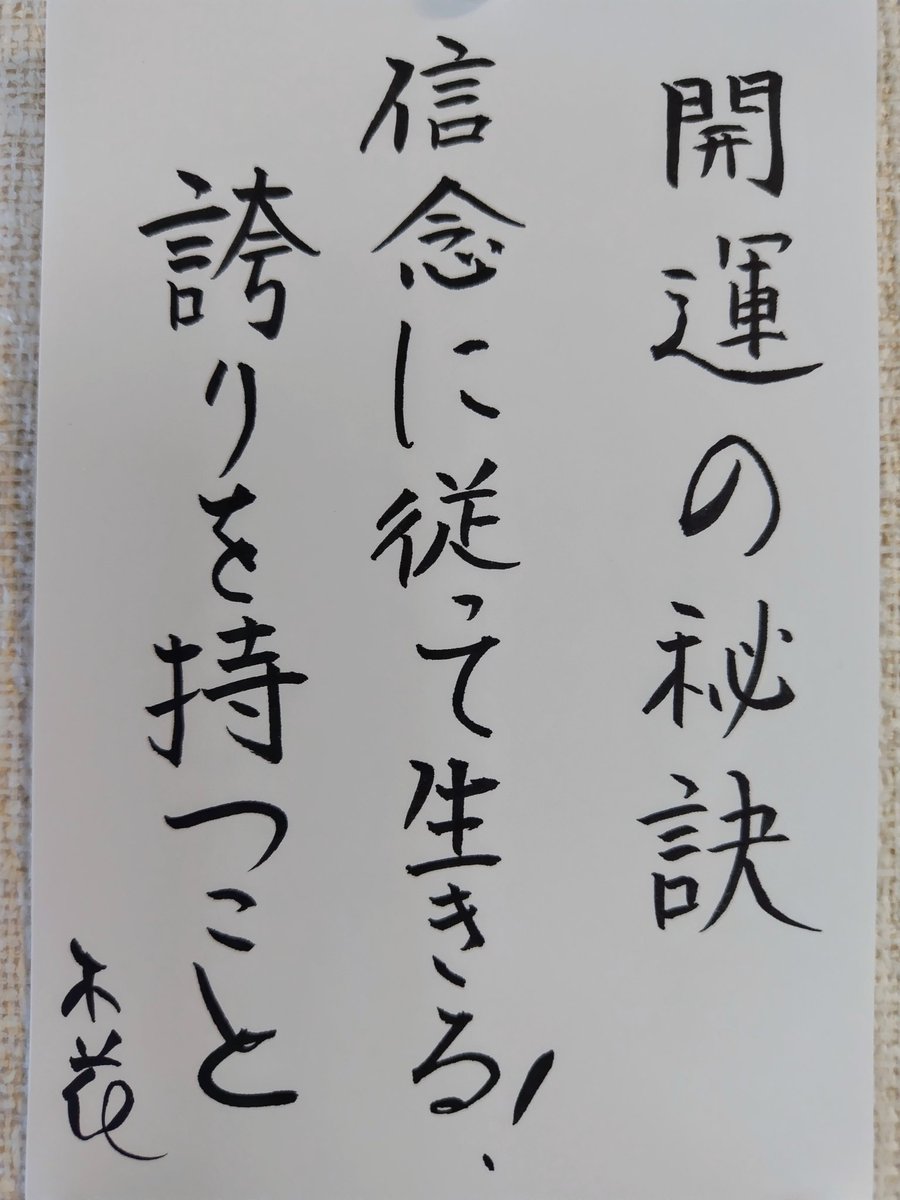 開運の秘訣
信念に従って生きる!
誇りを持つこと
木花